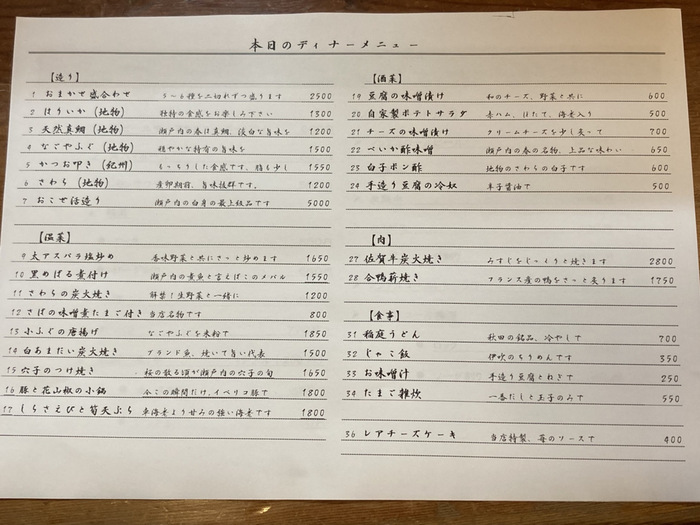 本日のディナーメニュー
【造り】
1 おまかせ盛合わせ 5～6種を二切れずつ盛ります 2500
2 はりいか（地物） 独特の食感をお楽しみ下さい 1300
3 天然真鯛（地物） 瀬戸内の春は真鯛、淡白な旨味を 1200
4 なごやふぐ（地物） 穏やかな特有の旨味を 1500
5 かつお叩き（紀州） もっちりした食感です、脂も少し 1550
6 さわら（地物） 産卵期前、旨味抜群です。 1200
7 おこぜ活造り 瀬戸内の白身の最上級品です 5000
【温菜】
9 太アスパラ塩炒め 香味野菜と共にさっと炒めます 1650
10 黒めばる煮付け 瀬戸内の煮魚と言えばこのメバル 1550
11 さわらの炭火焼き 解禁！生野菜と一緒に 1200
12 さばの味噌煮たまご付き 当店名物です 800
13 小ふぐの唐揚げ なごやふぐを米粉で 1850
14 白あまだい炭火焼き ブランド魚、焼いて旨い代表 1500
15 穴子のつけ焼き 桜の散る頃が瀬戸内の穴子の旬 1650
16 豚と花山椒の小鍋 今この瞬間だけ、イベリコ豚で 1800
17 しらさえびと筍天ぷら 車海老より甘みの強い海老です 1800
【酒菜】
19 豆腐の味噌漬け 和のチーズ、野菜と共に 600
20 自家製ポテトサラダ 赤ハム、ほたて、海老入り 500
21 チーズの味噌漬け クリームチーズを少し炙って 700
22 べいか酢味噌 瀬戸内の春の名物、上品な味わい 650
23 白子ポン酢 地物のさわらの白子です 600
24 手造り豆腐の冷奴 辛子醤油で 500
【肉】
27 佐賀牛炭火焼き みすじをじっくりと焼きます 2800
28 合鴨薪焼き フランス産の鴨をさっと炙ります 1750
【食事】
31 稲庭うどん 秋田の銘品、冷やして 700
32 じゃこ飯 伊吹のちりめんです 350
33 お味噌汁 手造り豆腐とねぎで 250
34 たまご雑炊 一番だしと玉子のみで 550
36 レアチーズケーキ 当店特製、苺のソースで 400